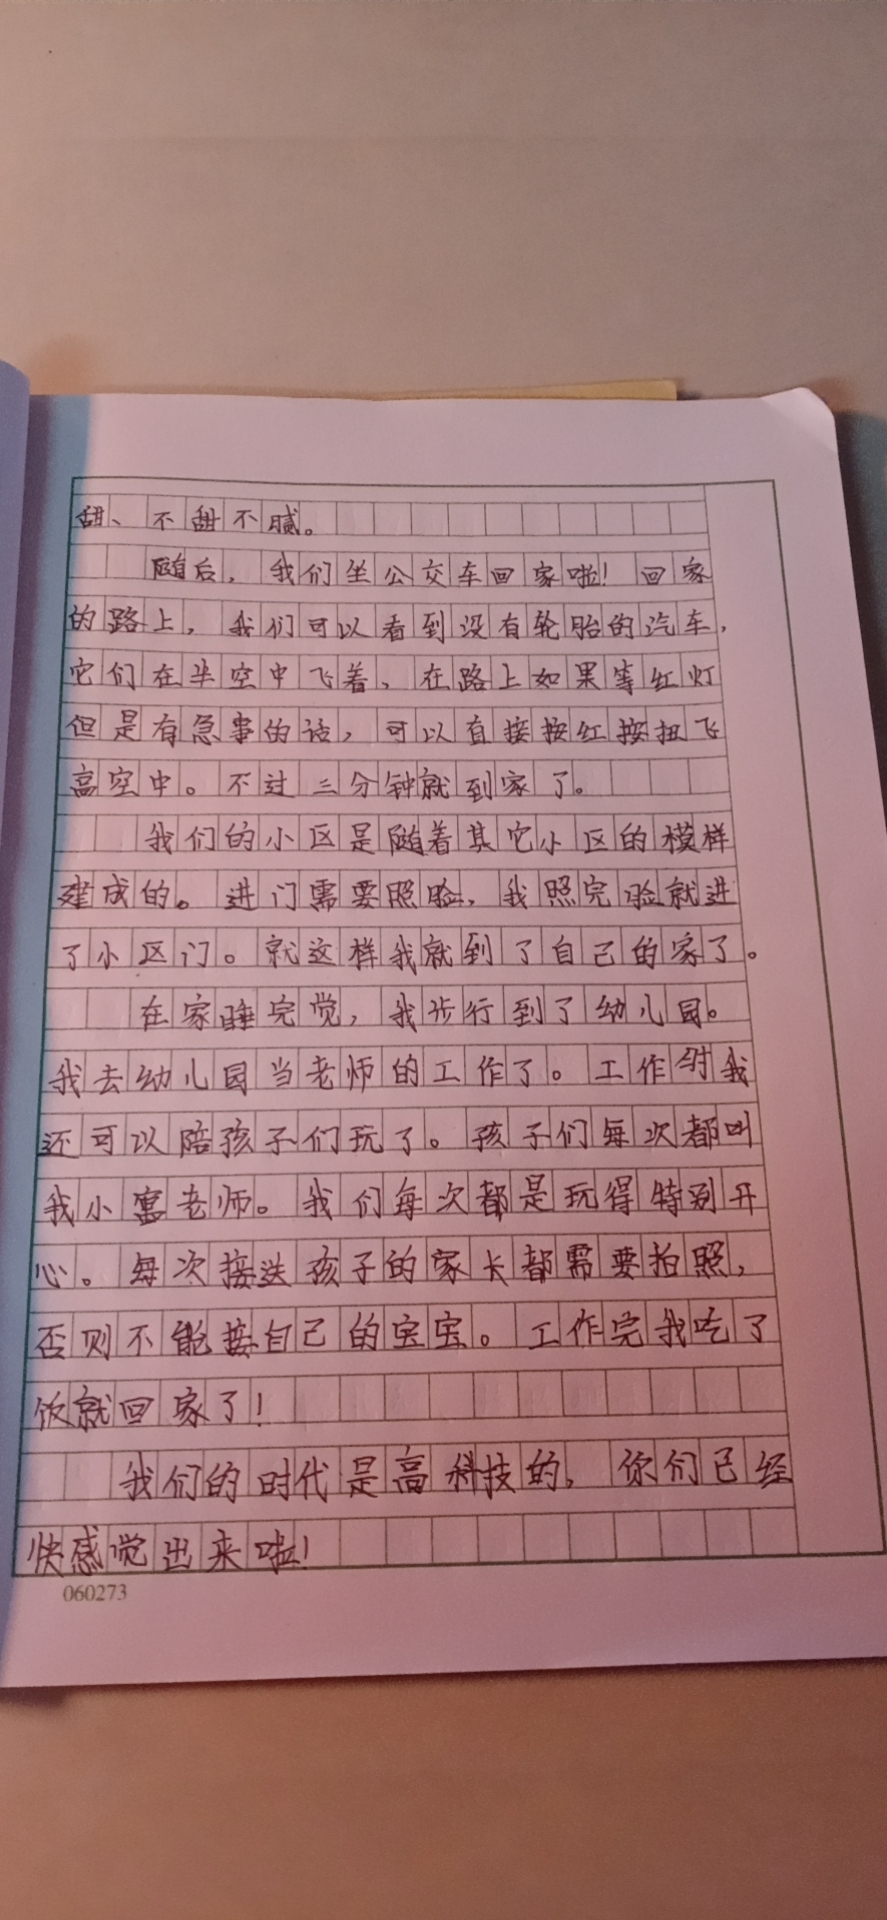 甜、不甜不腻。
随后，我们坐公交车回家啦！回家
的路上，我们可以看到没有轮胎的汽车，
它们在半空中飞着、在路上如果等红灯
但是有急事的话，可以直接按红按扭飞
高空中。不过三分钟就到家了。
我们的小区是随着其它小区的模样
建成的。进门需要照脸，我照完脸就进
了小区门。就这样我就到了自己的家了。
在家睡完觉，我步行到了幼儿园。
我去幼儿园当老师的工作了。工作时我
还可以陪孩子们玩了。孩子们每次都叫
我小老师。我们每次都是玩得特别开
心。每次接送孩子的家长都需要拍照，
否则不能接自己的宝宝。工作完我吃了
饭就回家了！
我们的时代是高科技的，你们已经
快感觉出来啦！
060273